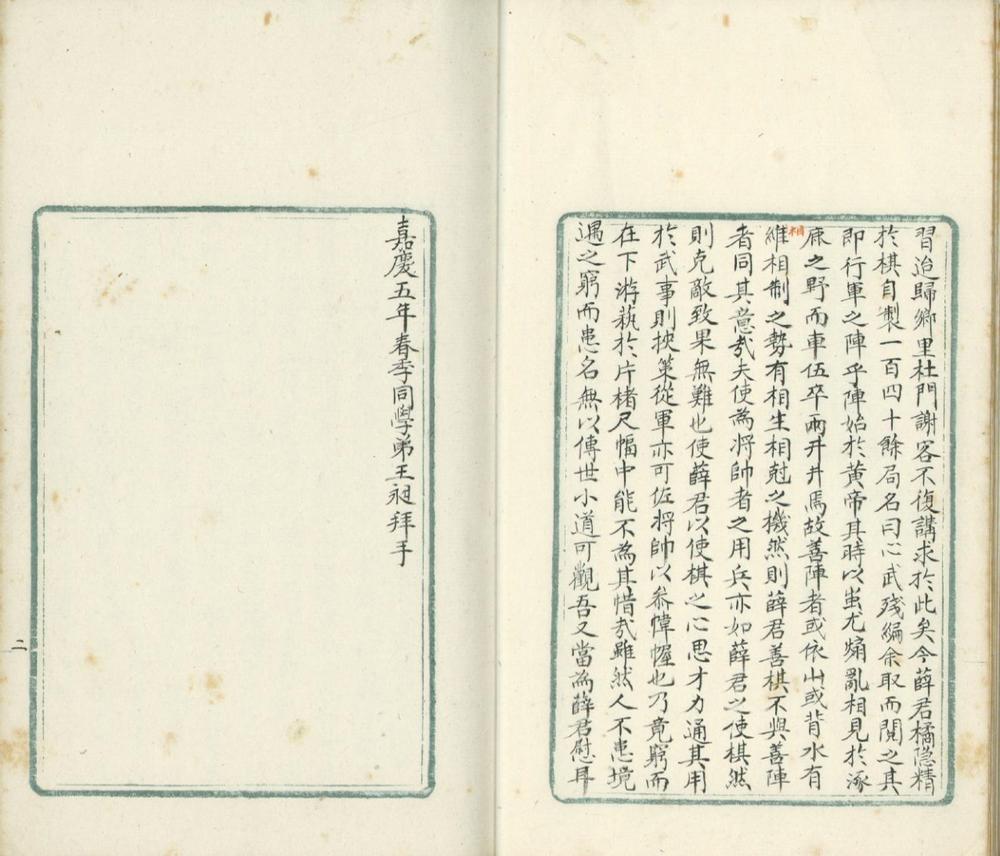 習迨歸鄉里杜門謝客不復講求於此矣今薛君橘隱精
於棋自製一百四十餘局名曰心武殘編余取而閱之其
即行軍之陣乎陣始於黃帝其時以蚩尤煽亂相見於涿
鹿之野而車伍卒兩井井焉故善陣者或依山或背水有
相
維相制之勢有相生相尅之機然則薛君善棋不與善陣
者同其意哉夫使為將帥者之用兵亦如薛君之使棋然
則克敵致果無難也使薛君以使棋之心思才力通其用
於武事則挾策從軍亦可佐將帥以叅幃幄也乃竟窮而
在下游藝於片楮尺幅中能不為其惜哉雖然人不患境
遇之窮而患名無以傳世小道可觀吾又當為薛君慰耳
嘉慶五年春季同學弟王昶拜手
二